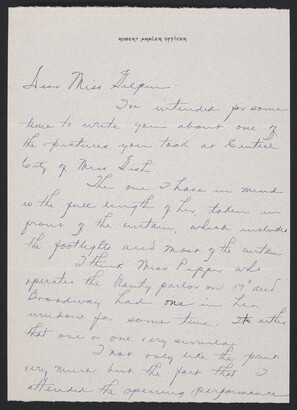 ROBERT AMBLER OFFICER
Dear Miss Gilpin
I've intended for some
time to write you about one of
the pictures you took at Central
City of Miss Gish.
The one I have in mind
is the full length of her, taken in
front of the curtain, which includes
the footlights and most of the curtain
I think Miss Pepper who
operates the Beauty parlor on 17th and
Broadway had one in her
window for some time. It either
that one or one very similar.
I not only like the print
very much but the fact that I
attended the opening performance